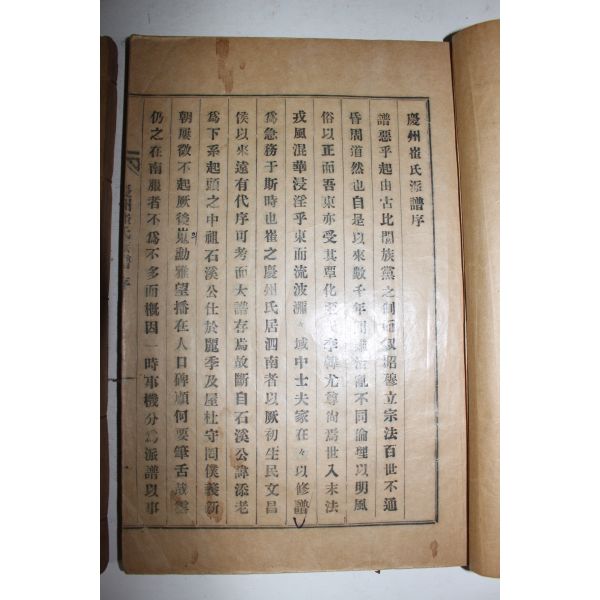 慶州崔氏派譜序
譜惡乎起由古比閭族黨之制而叙昭穆立宗法百世不通
昏周道然也自是以來數千年間雖治亂不同論理以明風
俗以正而吾東亦受其覃化至李韓尤尊尙爲世入末法
戎風混華浸淫乎東而流波瀰域中士夫家在々以修譜
爲急務于斯時也崔之慶州氏居泗南者以厥初生民文昌
侯以來遠有代序可考而大譜存焉故斷自石溪公諱添老
爲下系起頭之中祖石溪公仕於麗季及屋杜守罔僕義新
朝屢徵不起厥後嵬勳雅望播在人口碑頌何要筆舌哉雲
仍之在南服者不爲不多而槪因一時事機分爲派譜以事
慶州崔氏派譜序